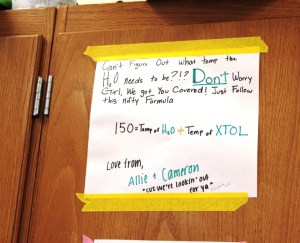 Can't Figure Out what temp the
H2O needs to be?!? Don't Worry
Girl, We got You Covered! Just Follow
this nifty Formula
150 = Temp of H2O + Temp of XTOL
Love from,
Allie + Cameron
"cuz we're lookin' out
for ya"